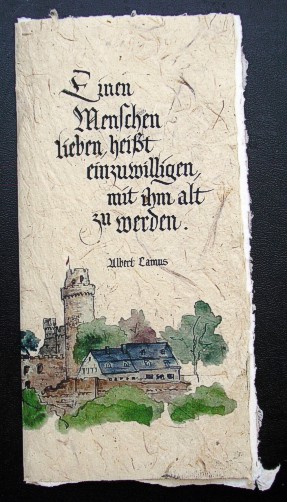 Einen
Menschen
lieben heißt
einzuwilligen,
mit ihm alt
zu werden.
Albert Camus